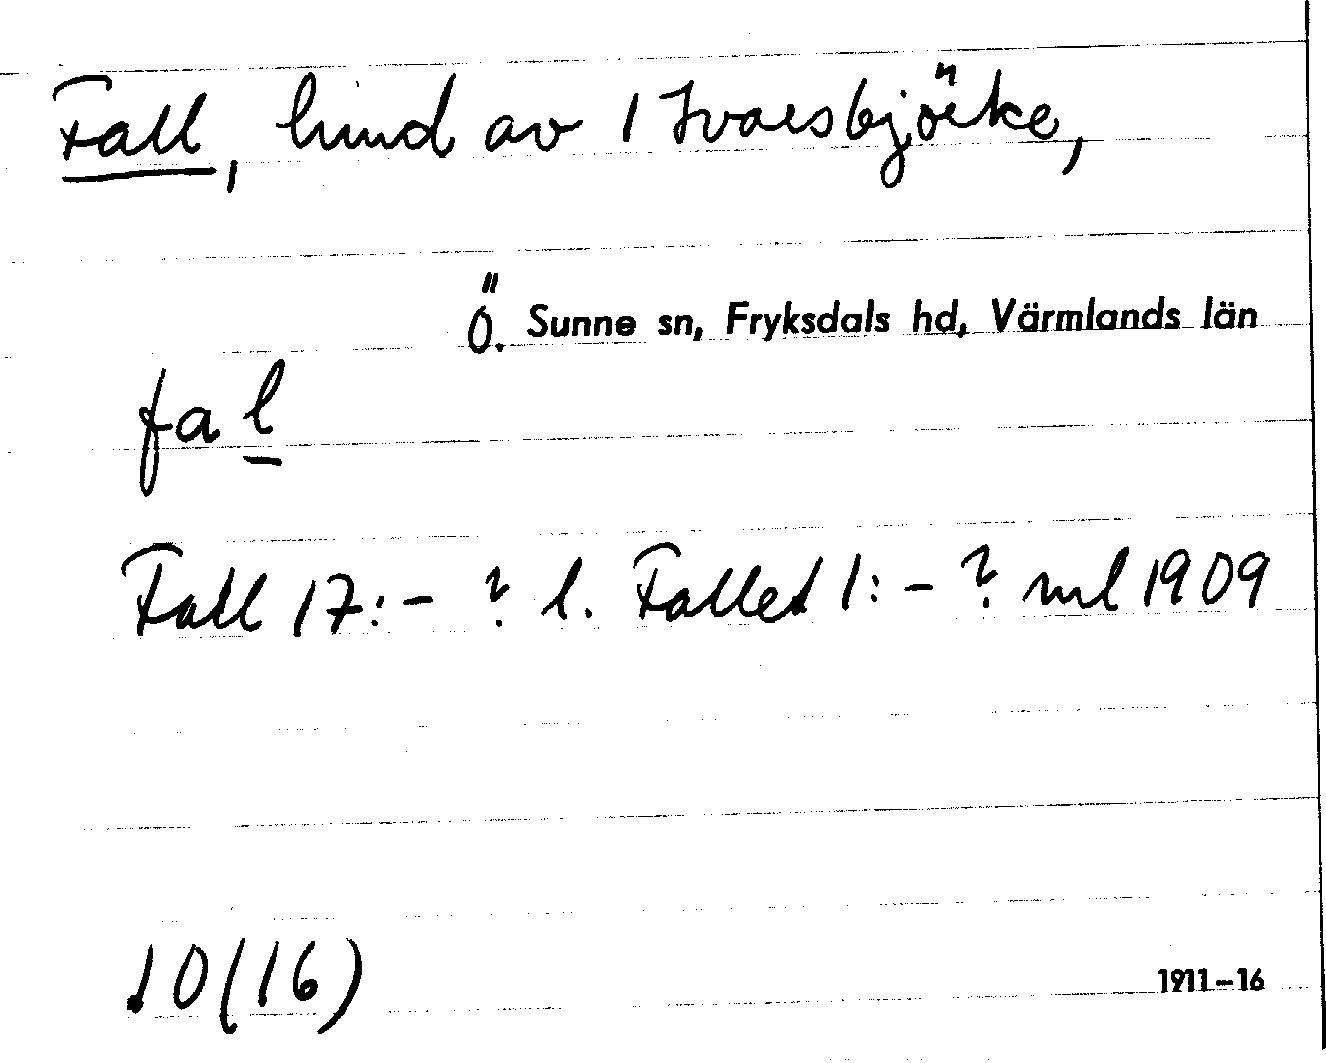 Fall, hmd av 1 Ivarsbjörke,
Ö. Sunne sn, Fryksdals hd, Värmlands län
fal
Fall 17:- ? l. Fallet 1:- ? ml 1909
10(16) 1911-16